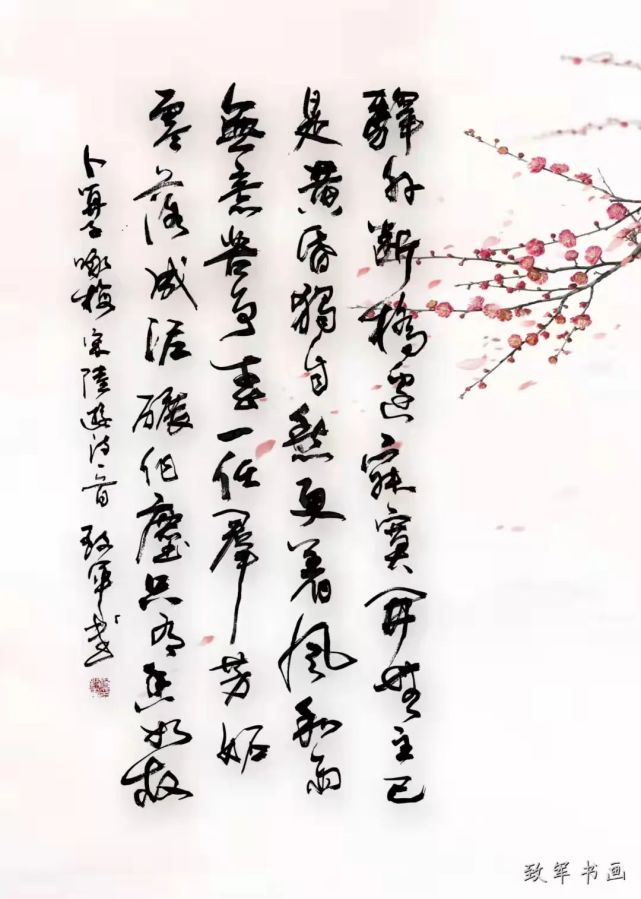 驛外斷橋邊寂寞開無主已
是黄昏獨自愁更着風和雨
無意苦争春一任羣芳妒
零落成泥碾作塵只有香如故
卜算子咏梅 宋陸遊詩一首 致军书
致军书画